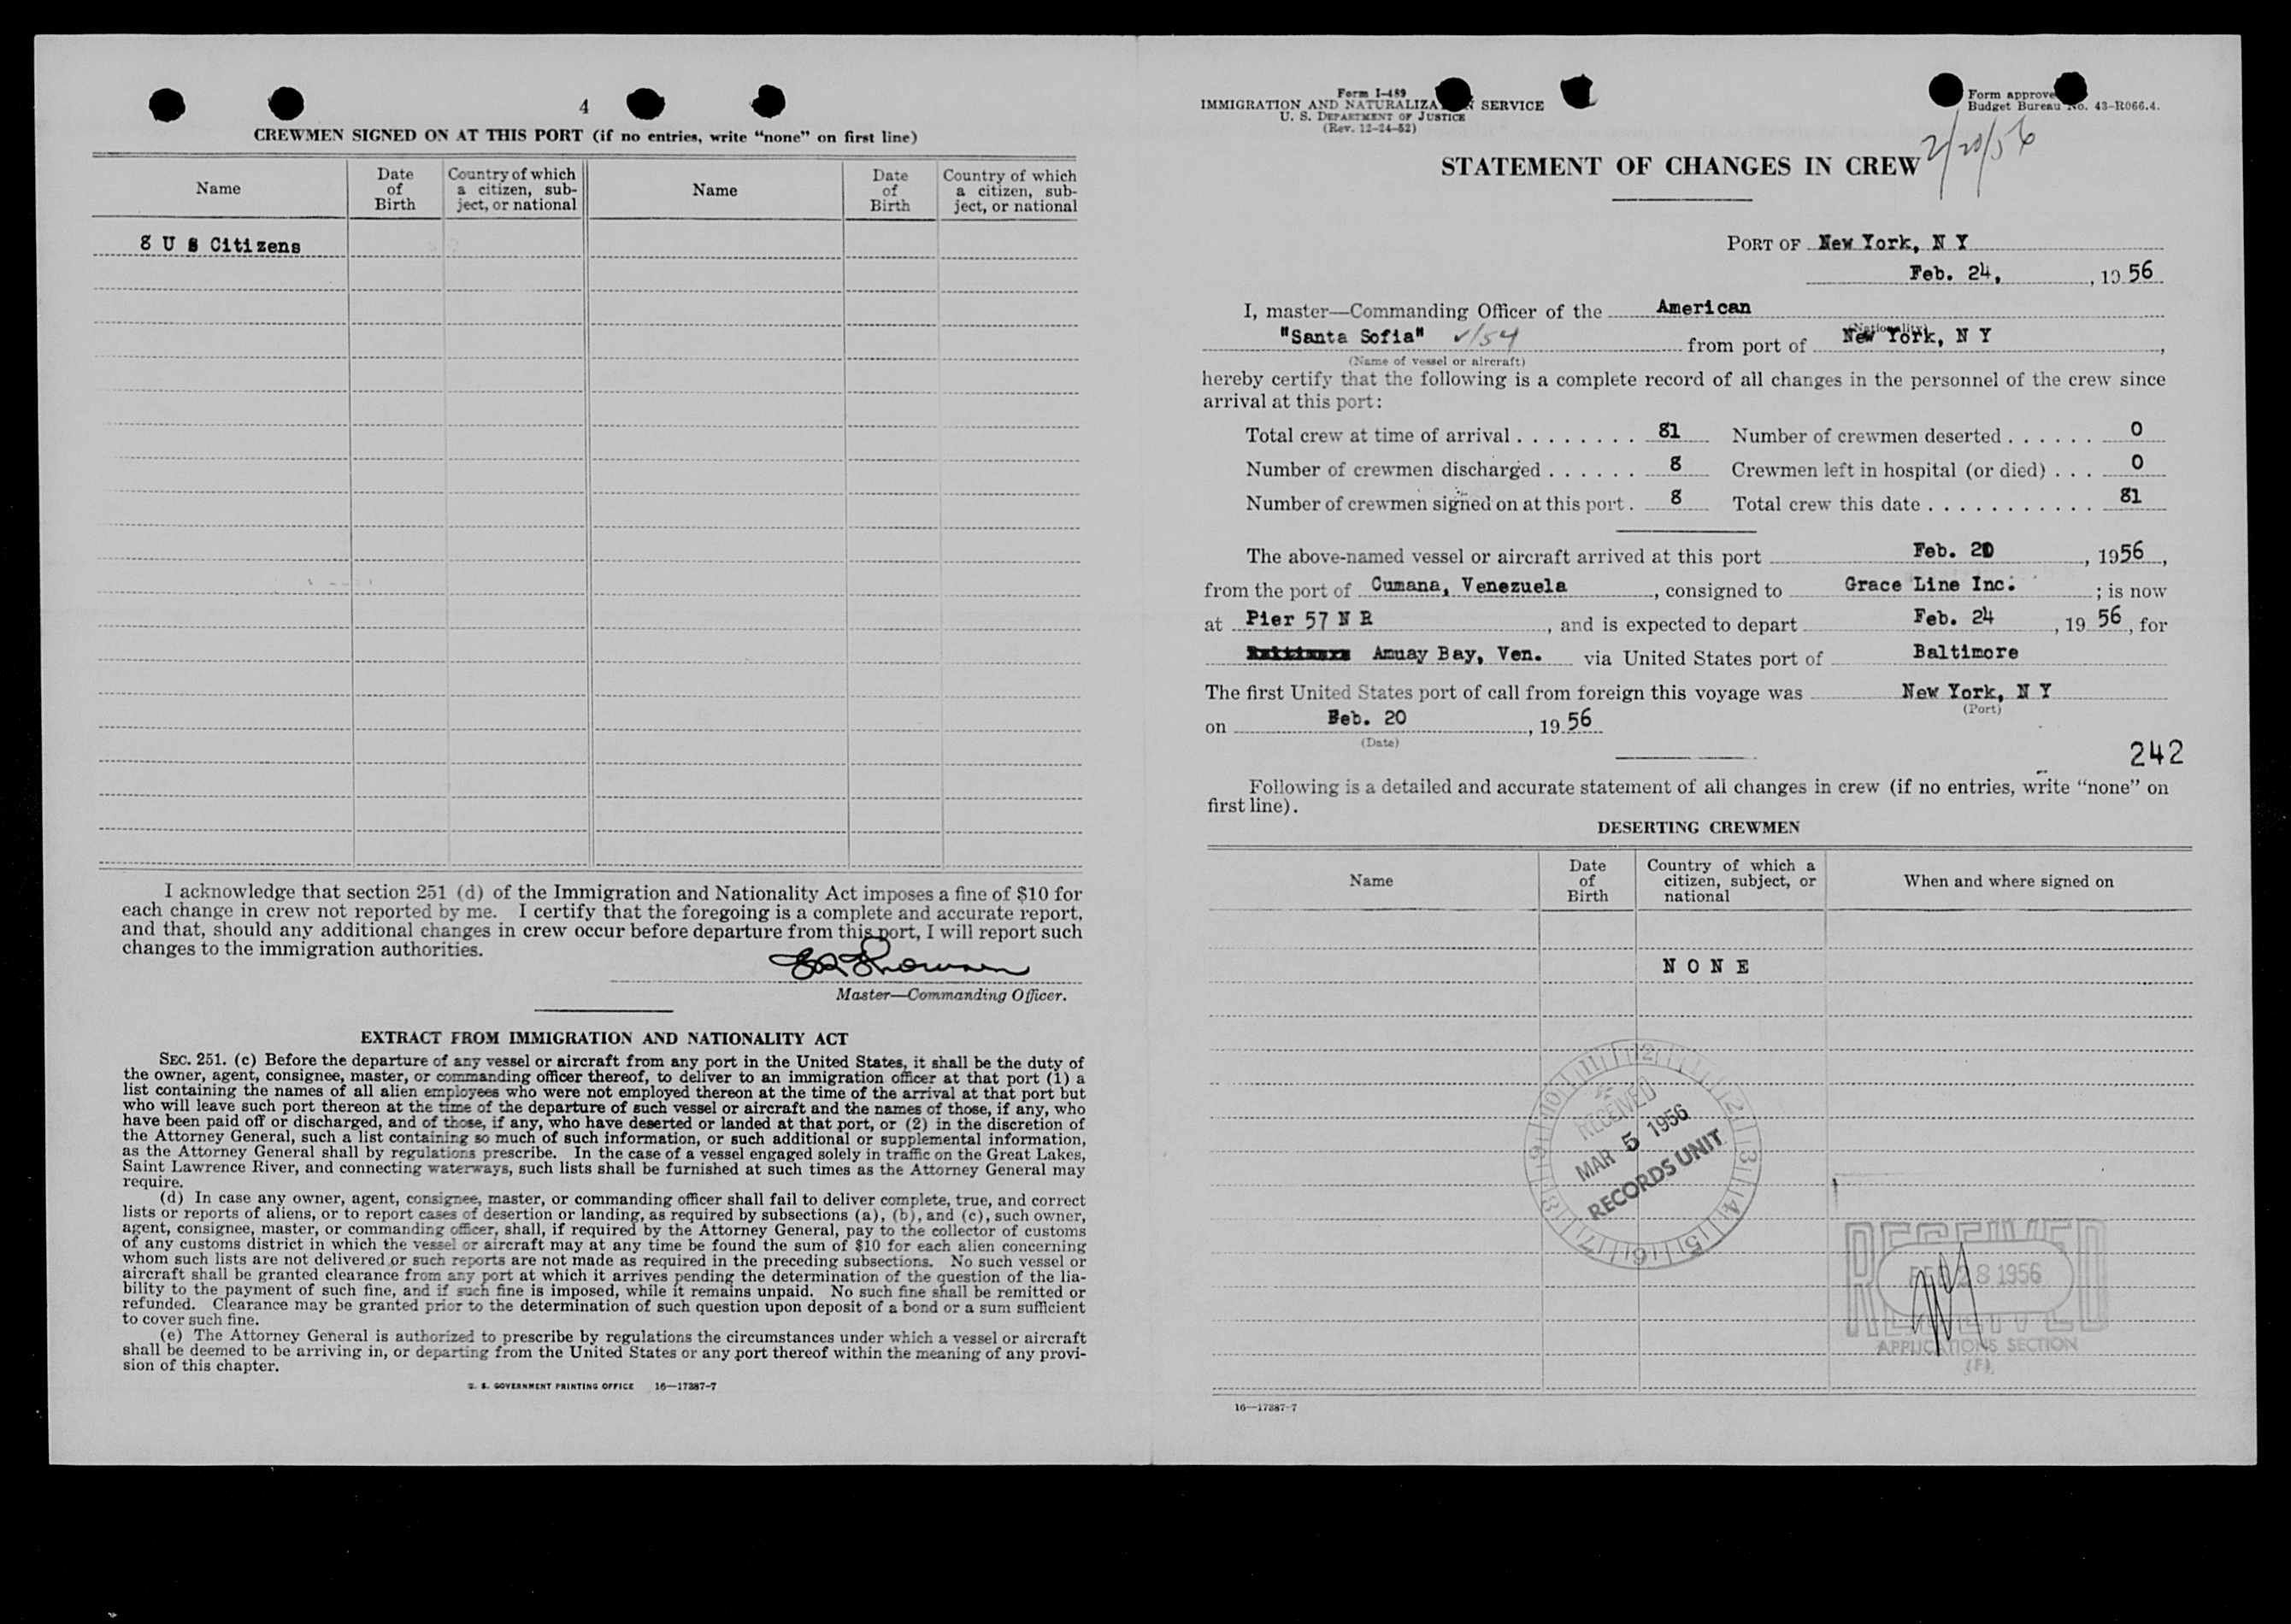 4
CREWMEN SIGNED ON AT THIS PORT (if no entries, write “none” on first line)
Name
Date of Birth
Country of which a citizen, subject, or national
Name
Date of Birth
Country of which a citizen, subject, or national
8 U S Citizens
I acknowledge that section 251 (d) of the Immigration and Nationality Act imposes a fine of $10 for
each change in crew not reported by me. I certify that the foregoing is a complete and accurate report,
and that, should any additional changes in crew occur before departure from this port, I will report such
changes to the immigration authorities.
Master—Commanding Officer.
EXTRACT FROM IMMIGRATION AND NATIONALITY ACT
SEC. 251. (c) Before the departure of any vessel or aircraft from any port in the United States, it shall be the duty of
the owner, agent, consignee, master, or commanding officer thereof, to deliver to an immigration officer at that port (1) a
list containing the names of all alien employees who were not employed thereon at the time of the arrival at that port but
who will leave such port thereon at the time of the departure of such vessel or aircraft and the names of those, if any, who
have been paid off or discharged, and of those, if any, who have deserted or landed at that port, or (2) in the discretion of
the Attorney General, such a list containing so much of such information, or such additional or supplemental information,
as the Attorney General shall by regulations prescribe. In the case of a vessel engaged solely in traffic on the Great Lakes,
Saint Lawrence River, and connecting waterways, such lists shall be furnished at such times as the Attorney General may
require.
(d) In case any owner, agent, consignee, master, or commanding officer shall fail to deliver complete, true, and correct
lists or reports of aliens, or to report cases of desertion or landing, as required by subsections (a), (b), and (c), such owner,
agent, consignee, master, or commanding officer, shall, if required by the Attorney General, pay to the collector of customs
of any customs district in which the vessel or aircraft may at any time be found the sum of $10 for each alien concerning
whom such lists are not delivered or such reports are not made as required in the preceding subsections. No such vessel or
aircraft shall be granted clearance from any port at which it arrives pending the determination of the question of the lia-
bility to the payment of such fine, and if such fine is imposed, while it remains unpaid. No such fine shall be remitted or
refunded. Clearance may be granted prior to the determination of such question upon deposit of a bond or a sum sufficient
to cover such fine.
(e) The Attorney General is authorized to prescribe by regulations the circumstances under which a vessel or aircraft
shall be deemed to be arriving in, or departing from the United States or any port thereof within the meaning of any provi-
sion of this chapter.
U. S. GOVERNMENT PRINTING OFFICE 16—17387-7
Form I-489
IMMIGRATION AND NATURALIZA SERVICE
U. S. DEPARTMENT OF JUSTICE
(Rev. 12-24-52)
Form approve
Budget Bureau No. 43-R066.4.
2/20/56
STATEMENT OF CHANGES IN CREW
PORT OF New York, N Y
Feb. 24, , 19 56
I, master—Commanding Officer of the American
(Nationality)
"Santa Sofia" v/54 from port of New York, N Y ,
(Name of vessel or aircraft)
hereby certify that the following is a complete record of all changes in the personnel of the crew since
arrival at this port:
Total crew at time of arrival . . . . . . . . 81 Number of crewmen deserted . . . . . . 0
Number of crewmen discharged . . . . . . 8 Crewmen left in hospital (or died) . . . 0
Number of crewmen signed on at this port . 8 Total crew this date . . . . . . . . . . . 81
The above-named vessel or aircraft arrived at this port Feb. 20 , 1956 ,
from the port of Cumana, Venezuela , consigned to Grace Line Inc. ; is now
at Pier 57 N R , and is expected to depart Feb. 24 , 19 56 , for
Amuay Bay, Ven. via United States port of Baltimore
The first United States port of call from foreign this voyage was New York, N Y
(Port)
on Feb. 20 , 19 56
(Date)
242
Following is a detailed and accurate statement of all changes in crew (if no entries, write “none” on
first line).
DESERTING CREWMEN
Name
Date of Birth
Country of which a citizen, subject, or national
When and where signed on
N O N E
12 1 2 3 4 5 6 7 8 9 10 11
RECEIVED
MAR 5 1956
RECORDS UNIT
RECEIVED
FEB 28 1956
RECEIVED
APPLICATIONS SECTION
16—17387-7